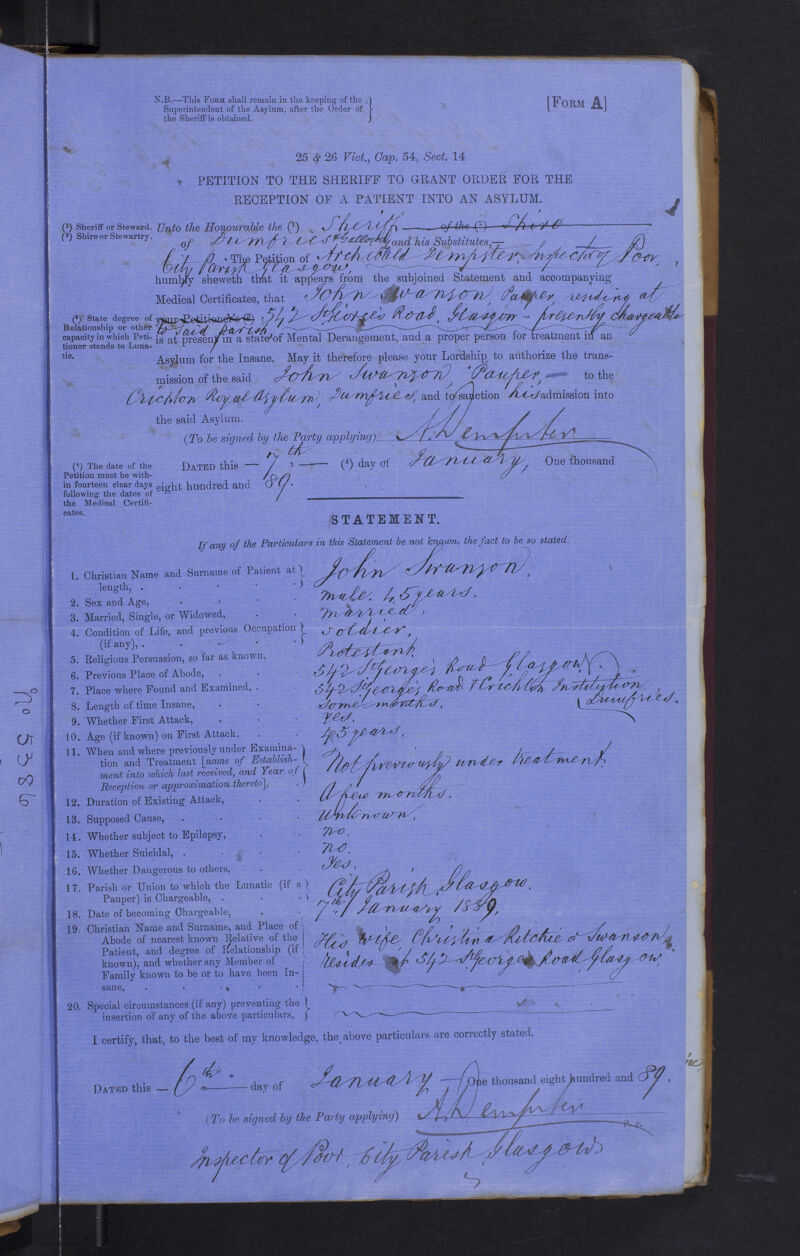 N.B.—This Form shall remain in the keeping of the
Superintendent of the Asylum, after the Order of
the Sheriff is obtained.
[Form A]
25 & 26 Vict., Cap. 54, Sect. 14
PETITION TO THE SHERIFF TO GRANT ORDER FOR THE
RECEPTION OF A PATIENT INTO AN ASYLUM.
(1) Sheriff or Steward.
(2) Shire or Stewartry.
Unto the Honourable the (1) Sheriff of the (2) Shire
of Dumfries & Galloway and his Substitutes,
The Petition of Archibald Dempster, Inspector of Poor,
City Parish Glasgow,
humbly sheweth that it appears from the subjoined Statement and accompanying
Medical Certificates, that John Swanson, Pauper, residing at
(3) State degree of
Relationship or other
capacity in which Peti-
tioner stands to Luna-
tic.
your Petitioner's (3) 542 St Georges Road, Glasgow - presently chargeable
to said parish
is at present in a state of Mental Derangement, and a proper person for treatment in an
Asylum for the Insane. May it therefore please your Lordship to authorize the trans-
mission of the said John Swanson, Pauper, to the
Crichton Royal Asylum, Dumfries, and to sanction his admission into
the said Asylum.
(To be signed by the Party applying) A. Dempster
(4) The date of the
Petition must be with-
in fourteen clear days
following the dates of
the Medical Certifi-
cates.
Dated this — 7th — (4) day of January, One thousand
eight hundred and 89.
STATEMENT.
If any of the Particulars in this Statement be not known, the fact to be so stated.
1. Christian Name and Surname of Patient at
length, . John Swanson,
2. Sex and Age, Male. 45 years.
3. Married, Single, or Widowed, Married,
4. Condition of Life, and previous Occupation
(if any), . Soldier,
5. Religious Persuasion, so far as known, Protestant
6. Previous Place of Abode, 542 St Georges Road Glasgow
7. Place where Found and Examined, . 542 St Georges Road & Crichton Institution Dumfries.
8. Length of time Insane, Some months.
9. Whether First Attack, Yes.
10. Age (if known) on First Attack, 45 years.
11. When and where previously under Examina-
tion and Treatment [name of Establish-
ment into which last received, and Year of
Reception or approximation thereto], Not previously under treatment
12. Duration of Existing Attack, A few months.
13. Supposed Cause, Unknown.
14. Whether subject to Epilepsy, No.
15. Whether Suicidal, . No.
16. Whether Dangerous to others, Yes.
17. Parish or Union to which the Lunatic (if a
Pauper) is Chargeable, . City Parish Glasgow.
18. Date of becoming Chargeable, 7th January 1889.
19. Christian Name and Surname, and Place of
Abode of nearest known Relative of the
Patient, and degree of Relationship (if
known), and whether any Member of
Family known to be or to have been In-
sane,
His wife, Christina Ritchie or Swanson,
resides at 542 St Georges Road Glasgow
20. Special circumstances (if any) preventing the
insertion of any of the above particulars,
I certify, that, to the best of my knowledge, the above particulars are correctly stated.
Dated this — 6th — day of January One thousand eight hundred and 89.
(To be signed by the Party applying) A. Dempster
Inspector of Poor, City Parish Glasgow
No 5386